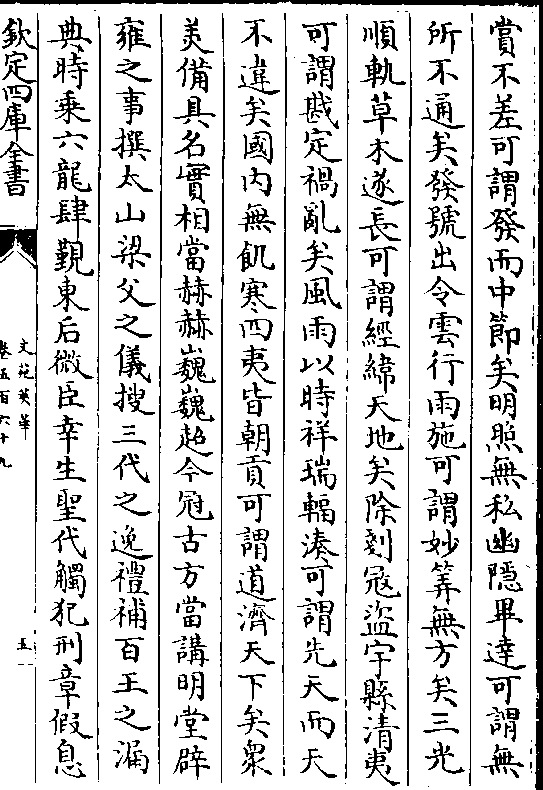 賞不差可謂發而中節矣明照無私幽隱畢達可謂無
所不通矣發號出令雲行雨施可謂妙筭無方矣三光
順軌草木遂長可謂經緯天地矣除剗宼盜宇縣清夷
可謂戡定禍亂矣風雨以時祥瑞輻湊可謂先天而天
不違矣國内無飢寒四夷皆朝貢可謂道濟天下矣衆
美備具名實相當赫赫巍巍超今冠古方當講明堂辟
雍之事撰太山梁父之儀搜三代之逸禮補百王之漏
典時乘六龍肆覲東后微臣幸生聖代觸犯刑章假息
欽定四庫全書
文苑英華
卷五百六十九
五